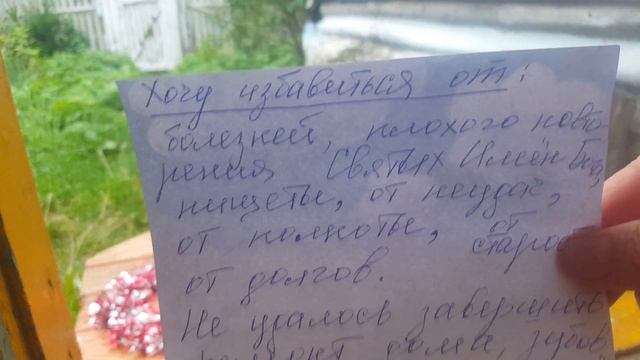 Хочу избавиться от:
болезней, плохого повто-
рения Святых Имён Бога,
нищеты, от неудач,
от полноты, от старости
от долгов.
Не удалось завершить
ремонт дома, зубов